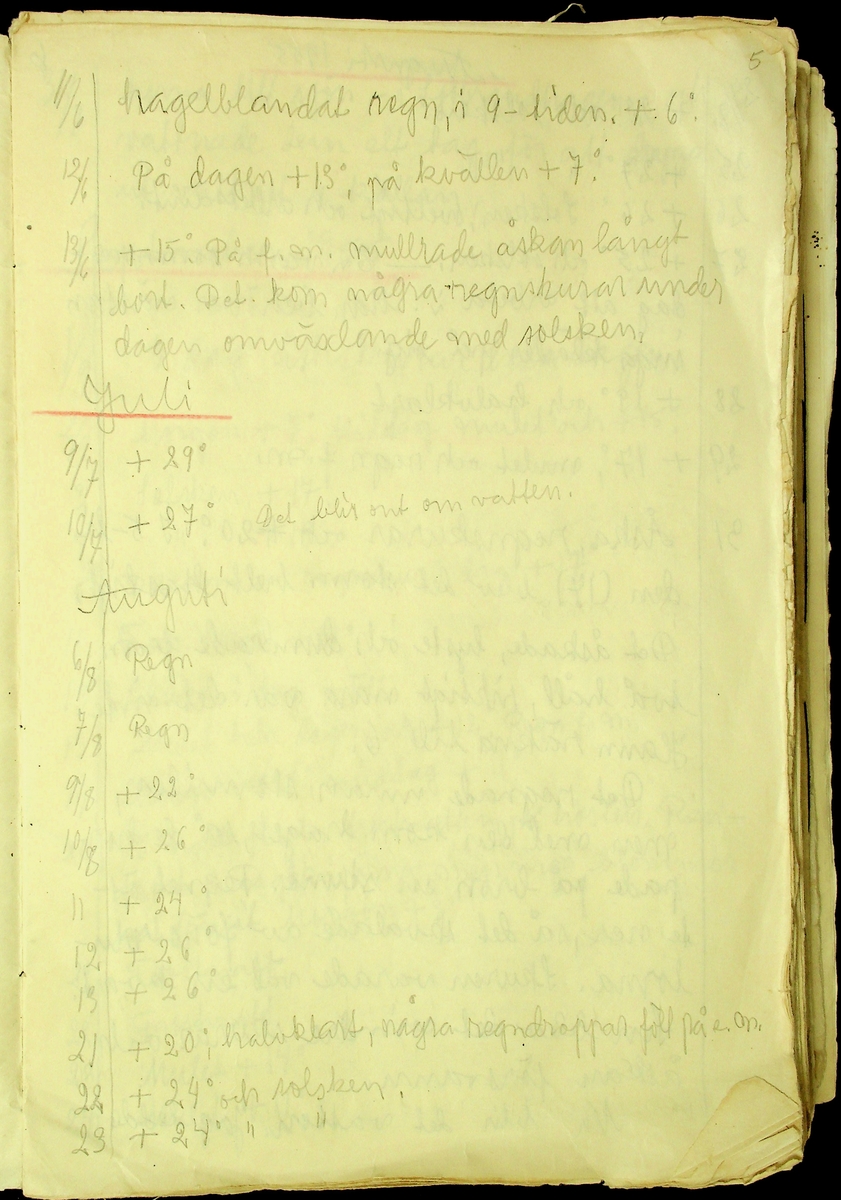 5
11/6 hagelblandat regn, i 9-tiden. + 6°.
12/6 På dagen +13°, på kvällen + 7°.
13/6 +15°. På f.m. mullrade åskan långt
bort. Det kom några regnskurar under
dagen omväxlande med solsken.
Juli
9/7 + 29°
10/7 + 27° Det blir ont om vatten.
Auguti
6/8 Regn
7/8 Regn
9/8 + 22°
10/8 + 26°
11 + 24°
12 + 26°
13 + 26°
21 + 20°, halvklart, några regndroppar föll på e.m.
22 + 24° och solsken.
23 + 24° " "